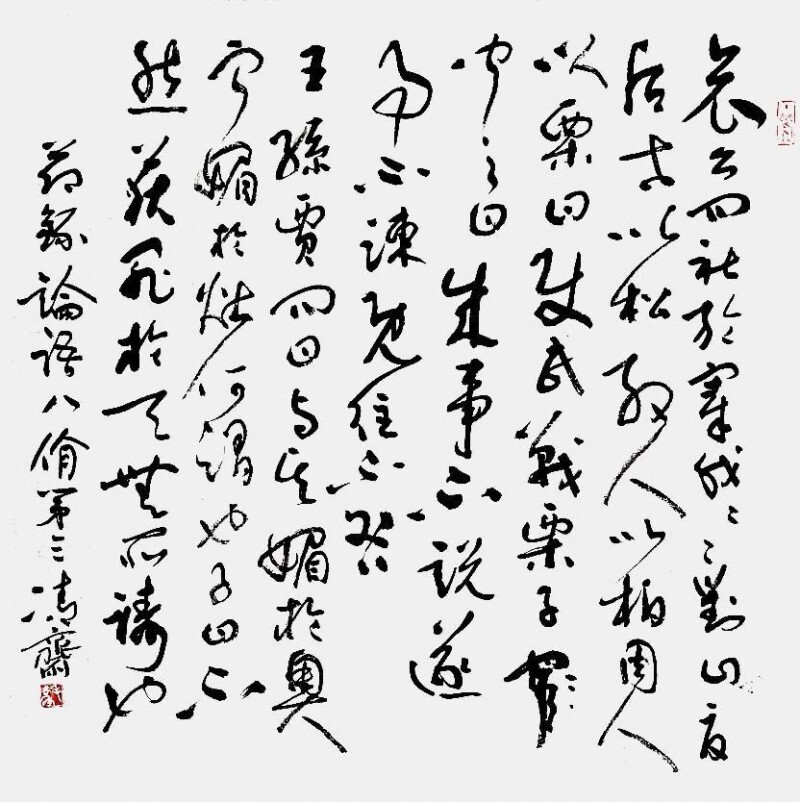 哀公問社於宰我〻〻對曰夏
后氏以松殷人以柏周人
以栗曰使民戰栗子
聞之曰成事不說遂
事不諫既往不咎
王孫賈問曰與其媚於奧
寧媚於竈何謂也子曰不
然獲罪於天無所禱也
節錄論語八佾第三清齋